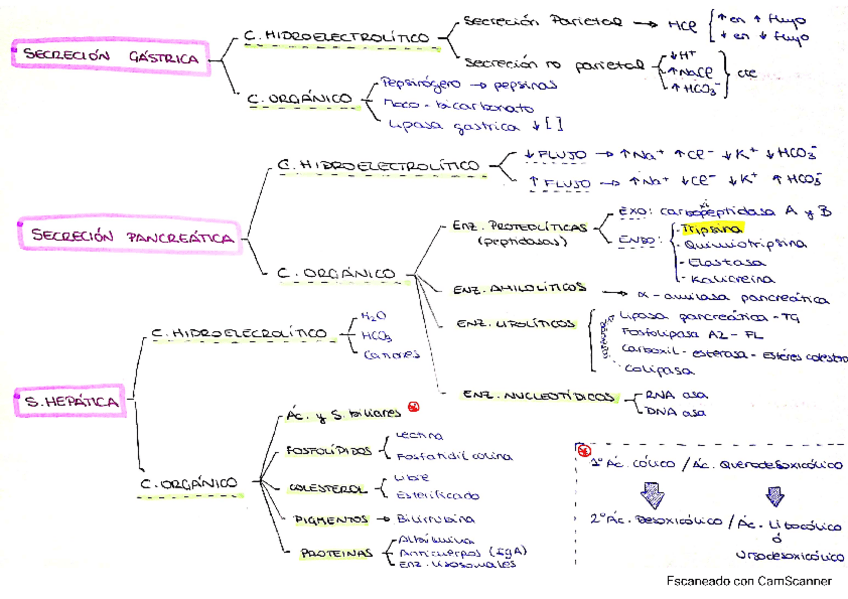 SECRECIÓN GÁSTRICA
C. HIDROELECTROLÍTICO
Secreción Parietal → HCl
↑ en ↑ flujo
↓ en ↓ flujo
Secreción no parietal
↓H+
↑NaCl
↑HCO3-
cte
C. ORGÁNICO
Pepsinógeno → pepsinas
Moco - bicarbonato
Lipasa gástrica ↓ []
SECRECIÓN PANCREÁTICA
C. HIDROELECTROLÍTICO
↓ FLUJO → ↑Na+ ↑Cl- ↓K+ ↓HCO3-
↑ FLUJO → ↑Na+ ↓Cl- ↓K+ ↑HCO3-
C. ORGÁNICO
ENZ. PROTEOLÍTICAS
(peptidasas)
EXO: carboxipeptidasa A y B
ENDO:
- Tripsina
- Quimiotripsina
- Elastasa
- Kalicreína
ENZ. AMILOLÍTICOS → α-amilasa pancreática
ENZ. LIPOLÍTICOS
Lipasa pancreática - TG
Fosfolipasa A2 - FL
Carboxil-esterasa - Ésteres colestro
Colipasa
ENZ. NUCLEOTÍDICOS
RNA asa
DNA asa
S. HEPÁTICA
C. HIDROELECROLÍTICO
H2O
HCO3
Cationes
C. ORGÁNICO
Ác. y S. biliares
FOSFOLÍPIDOS
Lectina
Fosfatidilcolina
COLESTEROL
Libre
Esterificado
PIGMENTOS → Bilirrubina
PROTEINAS
Albúmina
Anticuerpos (IgA)
Enz. lisosomales
1º Ác. cólico / Ác. Quenodesoxicólico
2º Ác. Desoxicólico / Ác. Litocólico
ó
Ursodesoxicólico
Escaneado con CamScanner